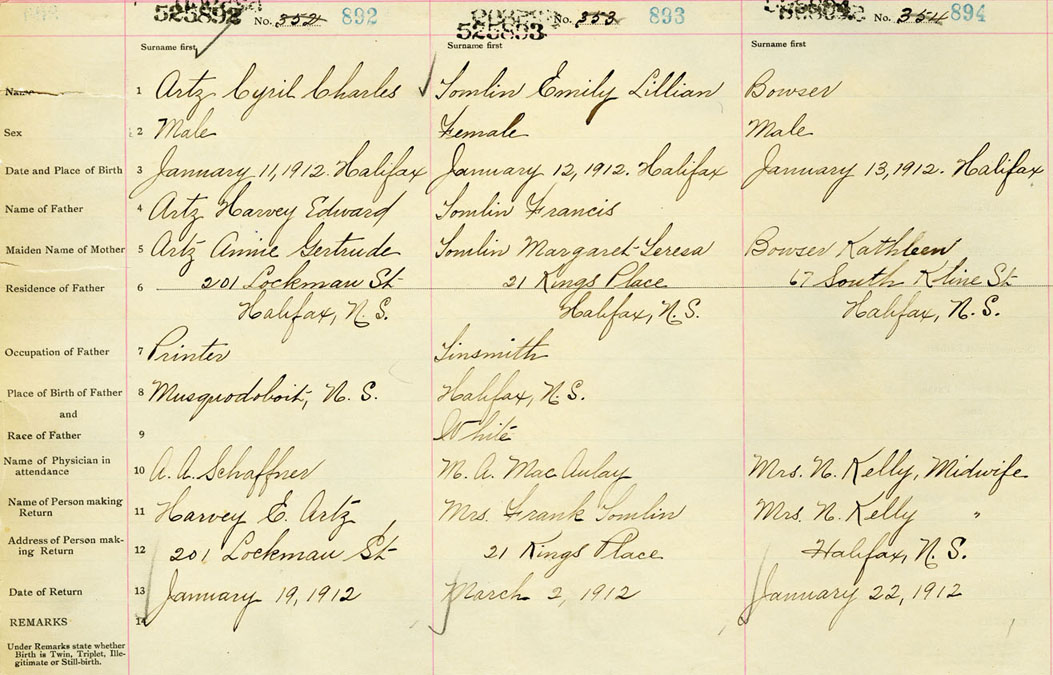 525892 No. 352 892
525893 No. 353 893
No. 354 894
Surname first Surname first Surname first
Name 1 Artz Cyril Charles Tomlin Emily Lillian Bowser
Sex 2 Male Female Male
Date and Place of Birth 3 January 11, 1912. Halifax January 12, 1912. Halifax January 13, 1912. Halifax
Name of Father 4 Artz Harvey Edward Tomlin Francis
Maiden Name of Mother 5 Artz Annie Gertrude Tomlin Margaret Teresa Bowser Kathleen
Residence of Father 6 201 Lockman St 21 Kings Place 67 South Kline St
Halifax, N.S. Halifax, N.S. Halifax, N.S.
Occupation of Father 7 Printer Tinsmith
Place of Birth of Father 8 Musquodoboit, N.S. Halifax, N.S.
and
Race of Father 9 White
Name of Physician in
attendance 10 A. A. Schaffner M. A. MacAulay Mrs. N. Kelly, Midwife
Name of Person making
Return 11 Harvey E. Artz Mrs. Frank Tomlin Mrs. N. Kelly "
Address of Person mak-
ing Return 12 201 Lockman St 21 Kings Place Halifax, N.S.
Date of Return 13 January 19, 1912 March 2, 1912 January 22, 1912
REMARKS 14
Under Remarks state whether
Birth is Twin, Triplet, Ille-
gitimate or Still-birth.